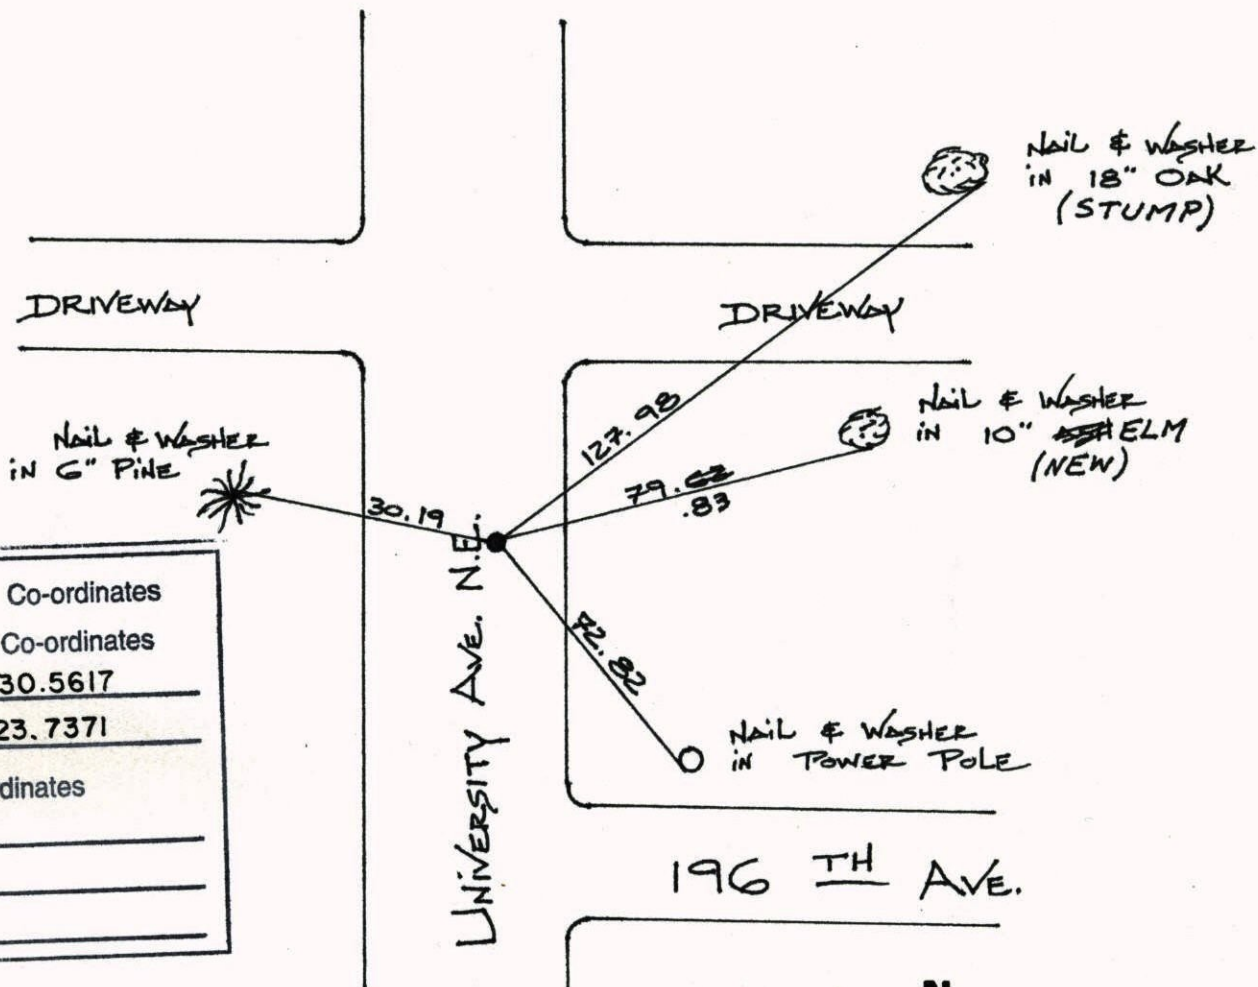 NAIL & WASHER
IN 18" OAK
(STUMP)
DRIVEWAY
DRIVEWAY
NAIL & WASHER
IN 10" ASH ELM
(NEW)
NAIL & WASHER
IN 6" PINE
127.98
79.62
.83
30.19
72.82
UNIVERSITY AVE. N.E.
NAIL & WASHER
IN POWER POLE
196 TH AVE.
Co-ordinates
Co-ordinates
30.5617
23.7371
dinates
N